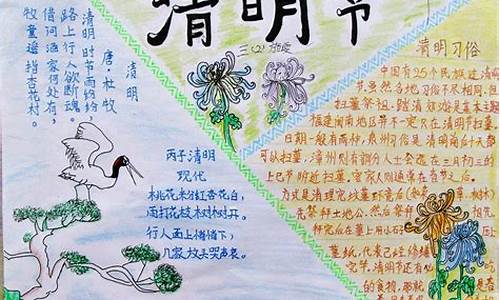 清明节
三(2)
清明
唐·杜牧
清明时节雨纷纷,
路上行人欲断魂。
借问酒家何处有,
牧童遥指杏花村。
丙子清明
现代
桃花粉红杏花白,
雨打花枝树树开。
行人面上
几家放头哭声哀。
清明习俗
中国有25个民族过清明
节,虽然各地习俗不尽相同,但
扫墓祭祖、踏清郊游是基本主题
福建闽南地区并不一定只在清明节扫墓
日期一般有两种,泉州习俗是清明前后十天都
可以扫墓,漳州则有部分人士会选在三月初三的
上巳节附近扫墓,客家人则通常在春节之后。
方式是清理完坟墓环境后(如
先祭拜土地公,然后祭拜
拜完后在墓上用小石
墓纸,代表已经修缮
完毕。清明节还有
的食物,那就